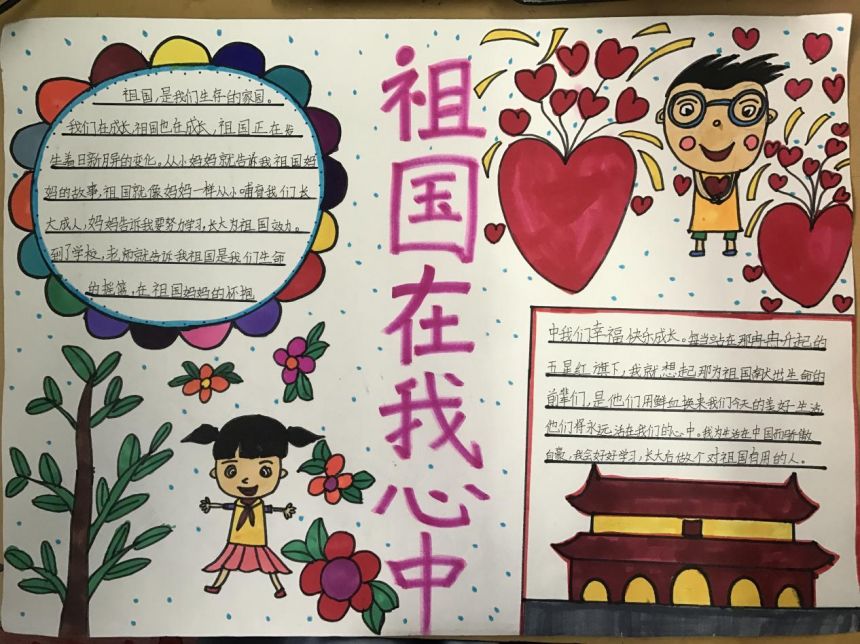 祖国在我心中
祖国,是我们生存的家园。
我们在成长,祖国也在成长,祖国正在发
生着日新月异的变化。从小妈妈就告诉我祖国妈
妈的故事,祖国就像妈妈一样从小哺育我们长
大成人,妈妈告诉我要努力学习,长大为祖国效力。
到了学校,老师就告诉我祖国是我们生命
的摇篮,在祖国妈妈的怀抱
中我们幸福快乐成长。每当站在那冉冉升起的
五星红旗下,我就想起那为祖国献出生命的
前辈们,是他们用鲜血换来我们今天的美好生活
他们将永远活在我们的心中。我为生活在中国而骄傲
自豪,我会好好学习,长大后做个对祖国有用的人。